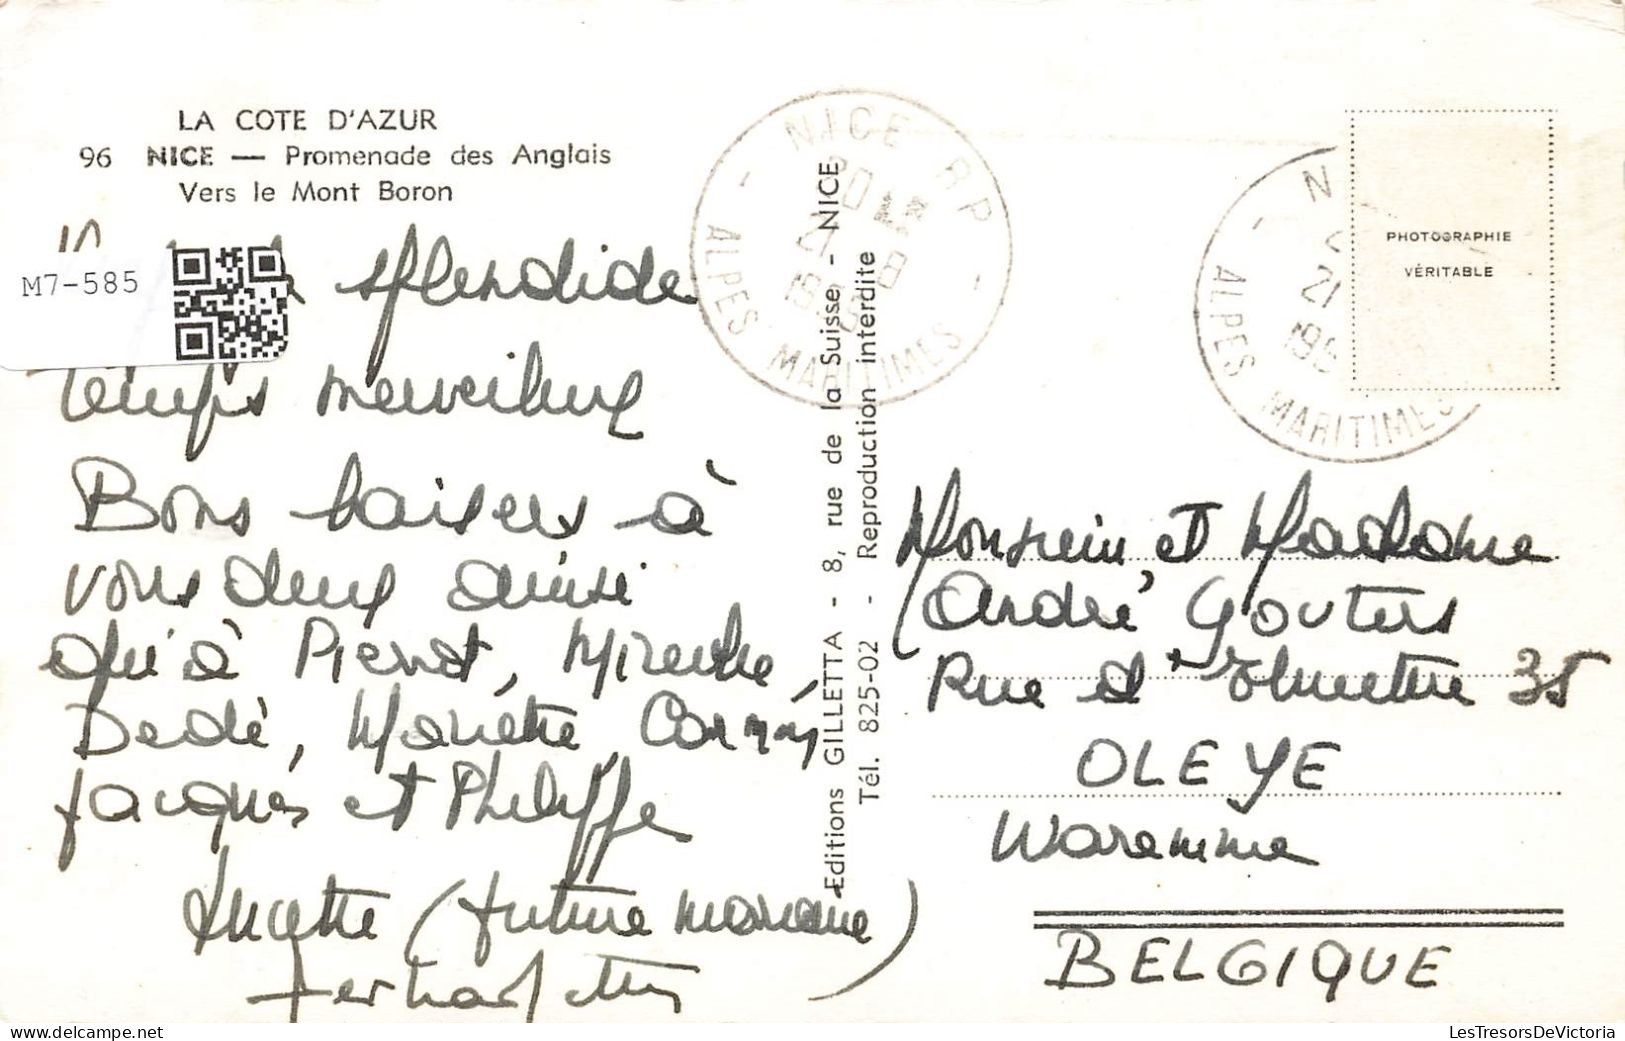 LA COTE D'AZUR
96 NICE — Promenade des Anglais
Vers le Mont Boron
M7-585
splendide
temps merveilleux
Bons baisers à
vous deux ainsi
qu'à Pierrot, Mireille,
Dédé, Mariette,
Jacques et Philippe
Lucette (future maman)
Editions GILLETTA - 8, rue de la Suisse - NICE
Tél. 825-02 - Reproduction interdite
NICE RP
ALPES MARITIMES
N
21
195
ALPES MARITIMES
PHOTOGRAPHIE
VÉRITABLE
Monsieur et Madame
André Gouters
Rue d' 35
OLEYE
Waremme
BELGIQUE
LesTresorsDeVictoria